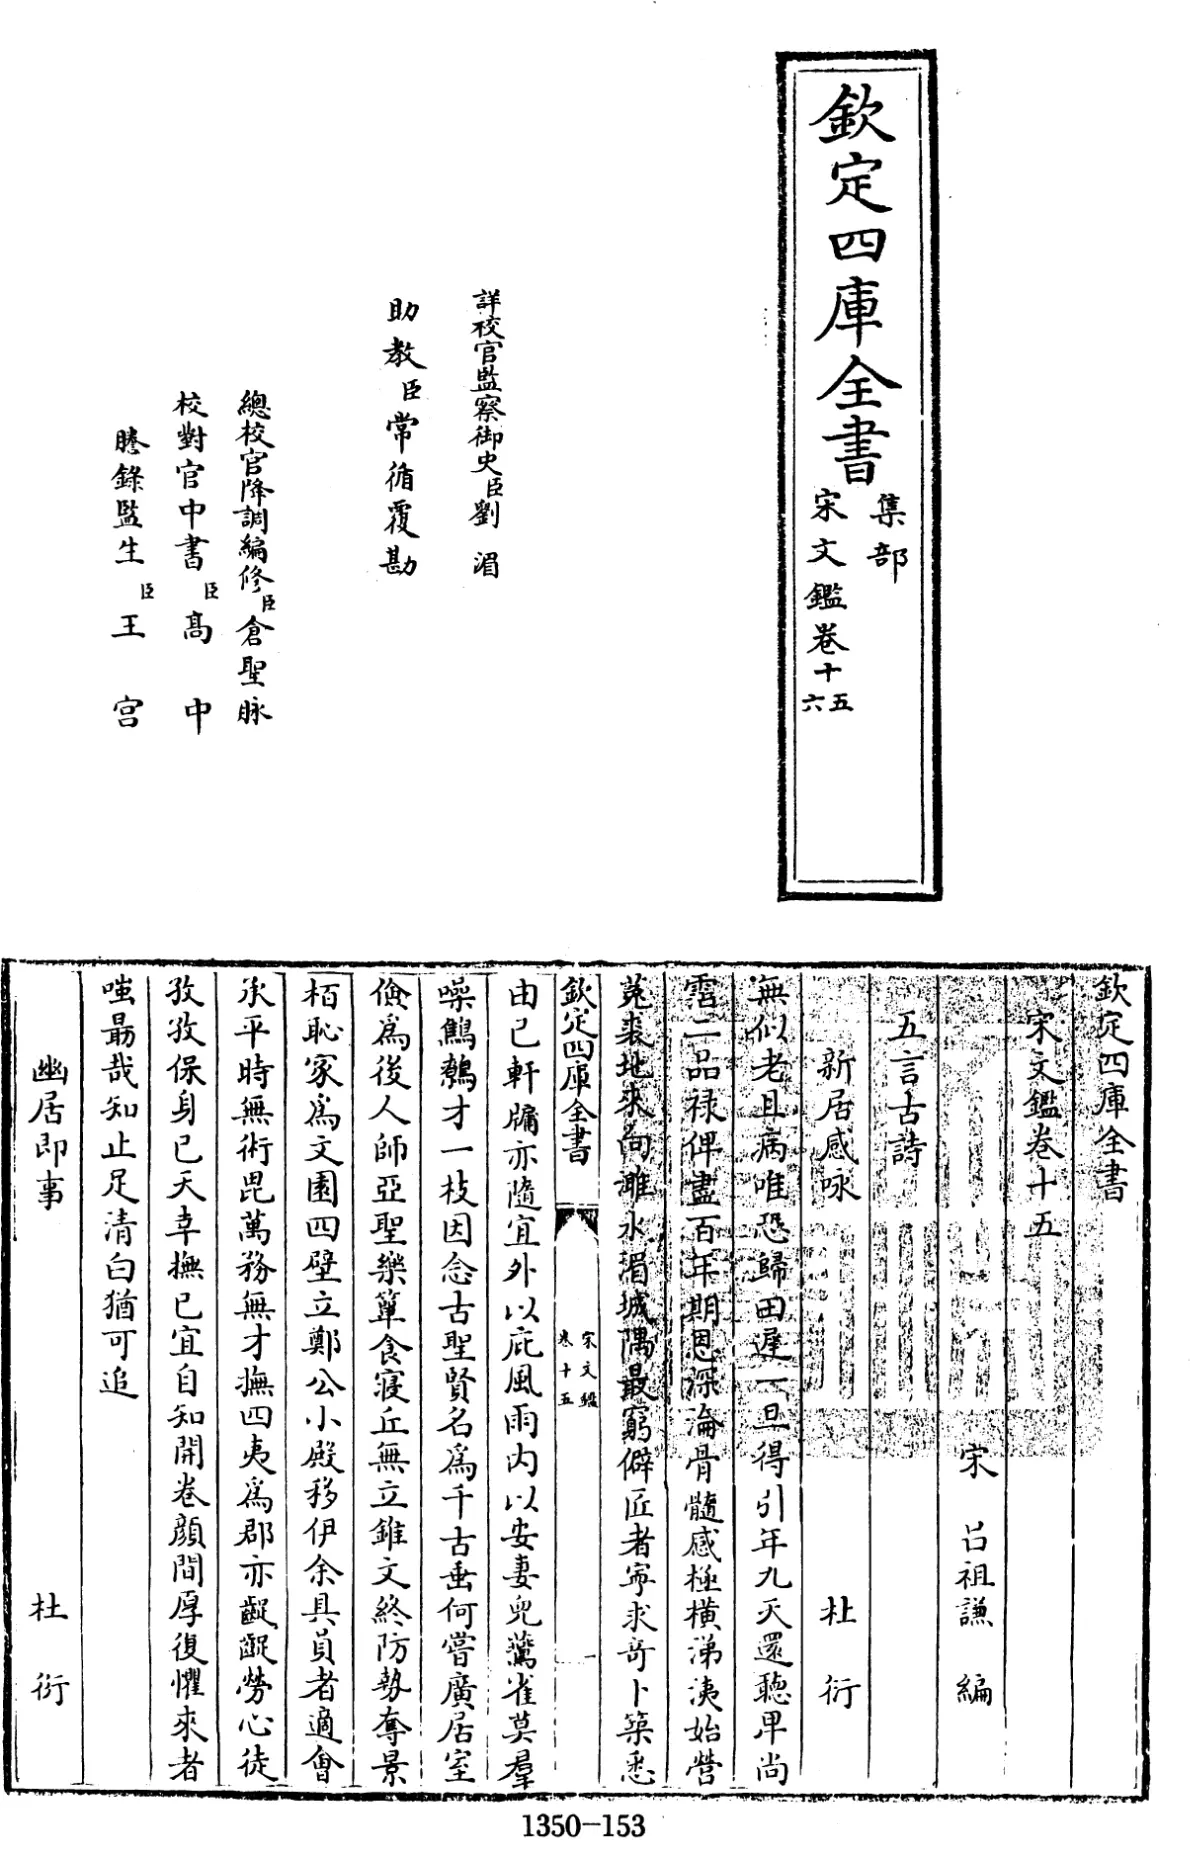 欽定四庫全書
集部
宋文鑑卷十五
六
詳校官監察御史臣劉湄
助教臣常循覆勘
總校官降調編修臣倉聖脉
校對官中書臣高中
謄錄監生臣王宫
欽定四庫全書
宋文鑑卷十五
宋 吕祖謙 編
五言古詩
新居感咏 杜衍
無似老且病唯恐歸田遲一旦得引年九天還聽卑尚
霑二品禄俾盡百年期恩深淪骨髓感極横涕洟始營
菟裘地來向雎水湄城隅最窮僻匠者寧求奇卜築悉
欽定四庫全書
宋文鑑
卷十五
一
由已軒牖亦隨宜外以庇風雨内以安妻兒鷰雀莫羣
噪鷦鷯才一枝因念古聖賢名為千古垂何嘗廣居室
儉為後人師亞聖樂簞食寢丘無立錐文終防勢奪景
栢恥家為文園四壁立鄭公小殿移伊余具員者適會
承平時無術毘萬務無才撫四夷為郡亦齪齪勞心徒
孜孜保身已天幸撫已宜自知開卷顔間厚復懼來者
嗤勗哉知止足清白猶可追
幽居即事 杜衍
1350-153